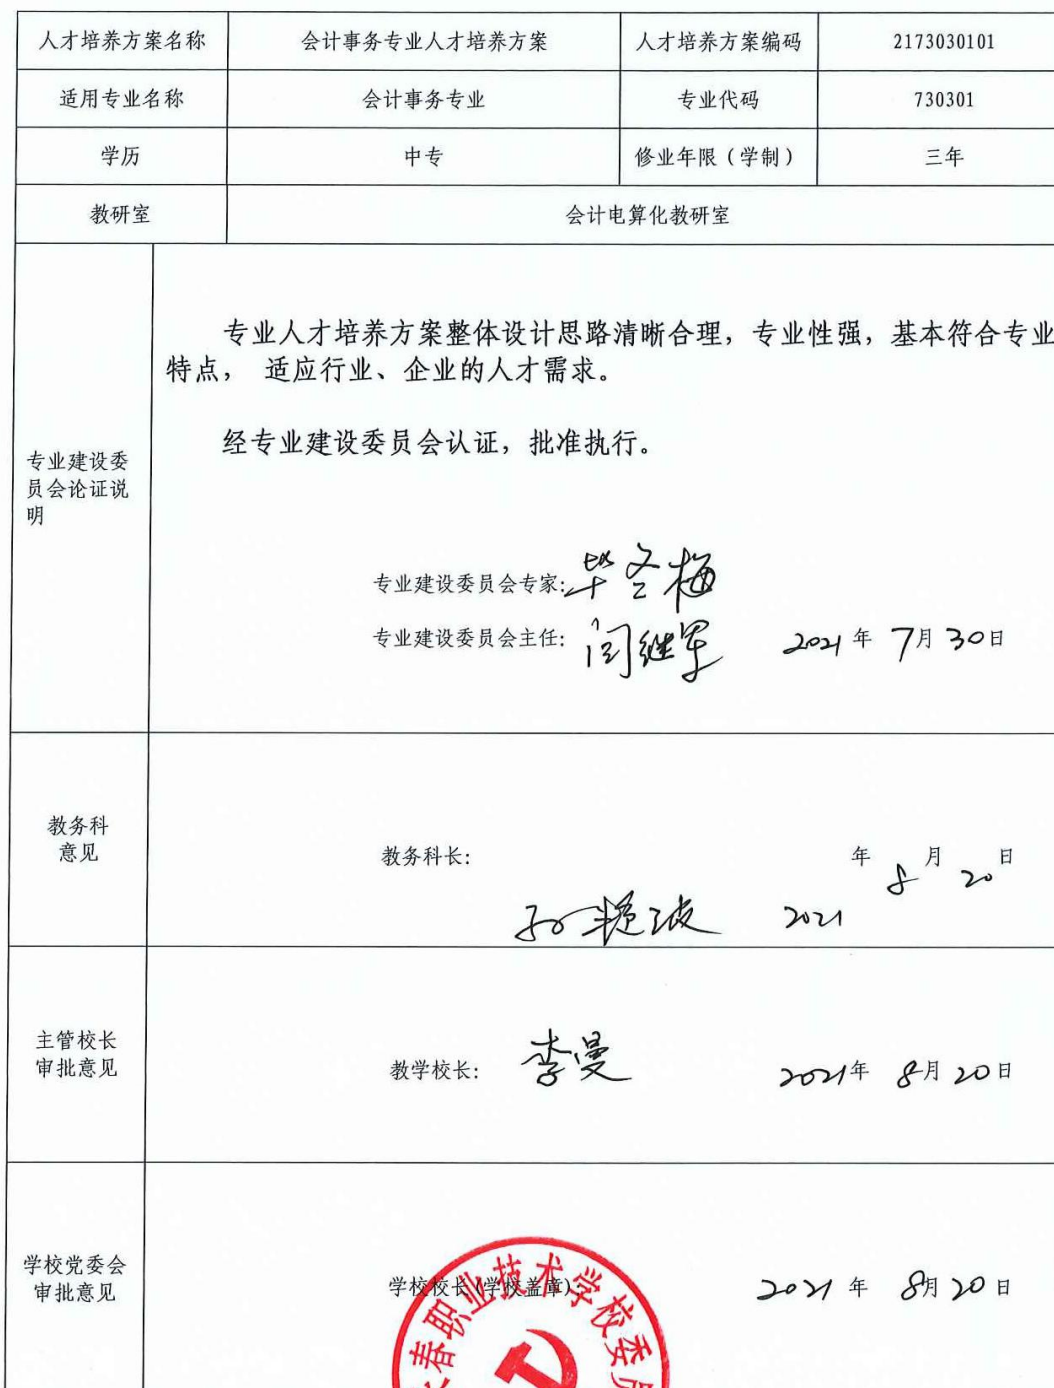 人才培养方案名称 会计事务专业人才培养方案 人才培养方案编码 2173030101
适用专业名称 会计事务专业 专业代码 730301
学历 中专 修业年限（学制） 三年
教研室 会计电算化教研室
专业建设委
员会论证说
明
专业人才培养方案整体设计思路清晰合理，专业性强，基本符合专业
特点， 适应行业、企业的人才需求。
经专业建设委员会认证，批准执行。
专业建设委员会专家：毕冬梅
专业建设委员会主任：闫继军 2021年 7月30日
教务科
意见
教务科长： 2021年 8月 20日
主管校长
审批意见
教学校长：李曼 2021年 8月20日
学校党委会
审批意见
学校校长（学校盖章） 2021年 8月20日
春职业技术学校委员